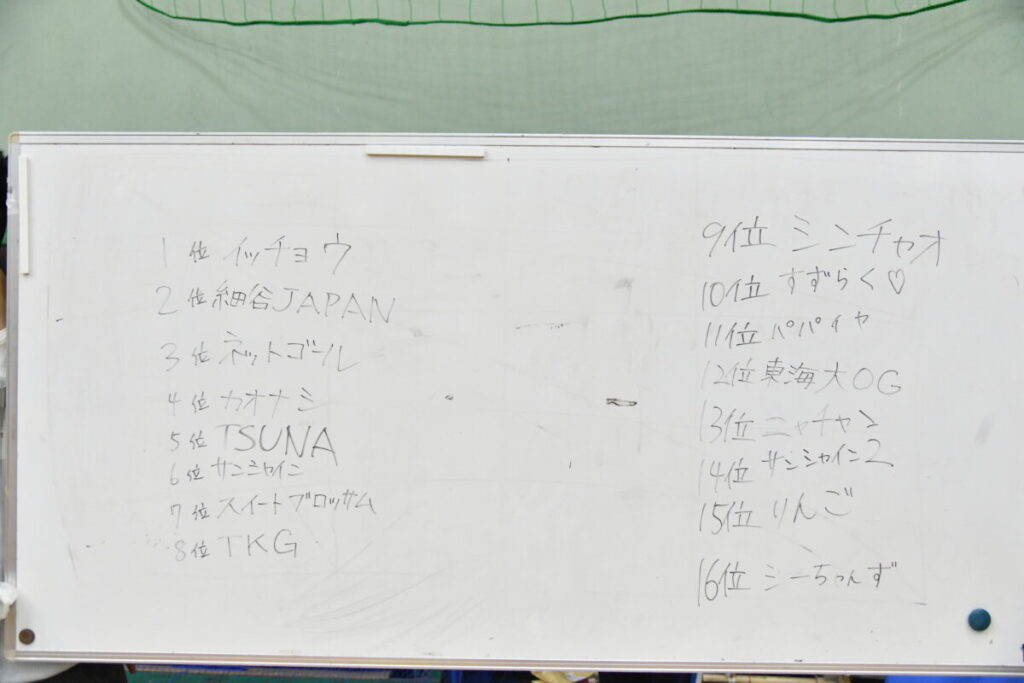 1位 イッチョウ
2位 細谷JAPAN
3位 ネットゴール
4位 カオナシ
5位 TSUNA
6位 サンシャイン
7位 スイートブロッサム
8位 TKG
9位 シンチャオ
10位 すずらく♡
11位 パパイヤ
12位 東海大OG
13位 ニャチャン
14位 サンシャイン2
15位 りんご
16位 シーちゃんず